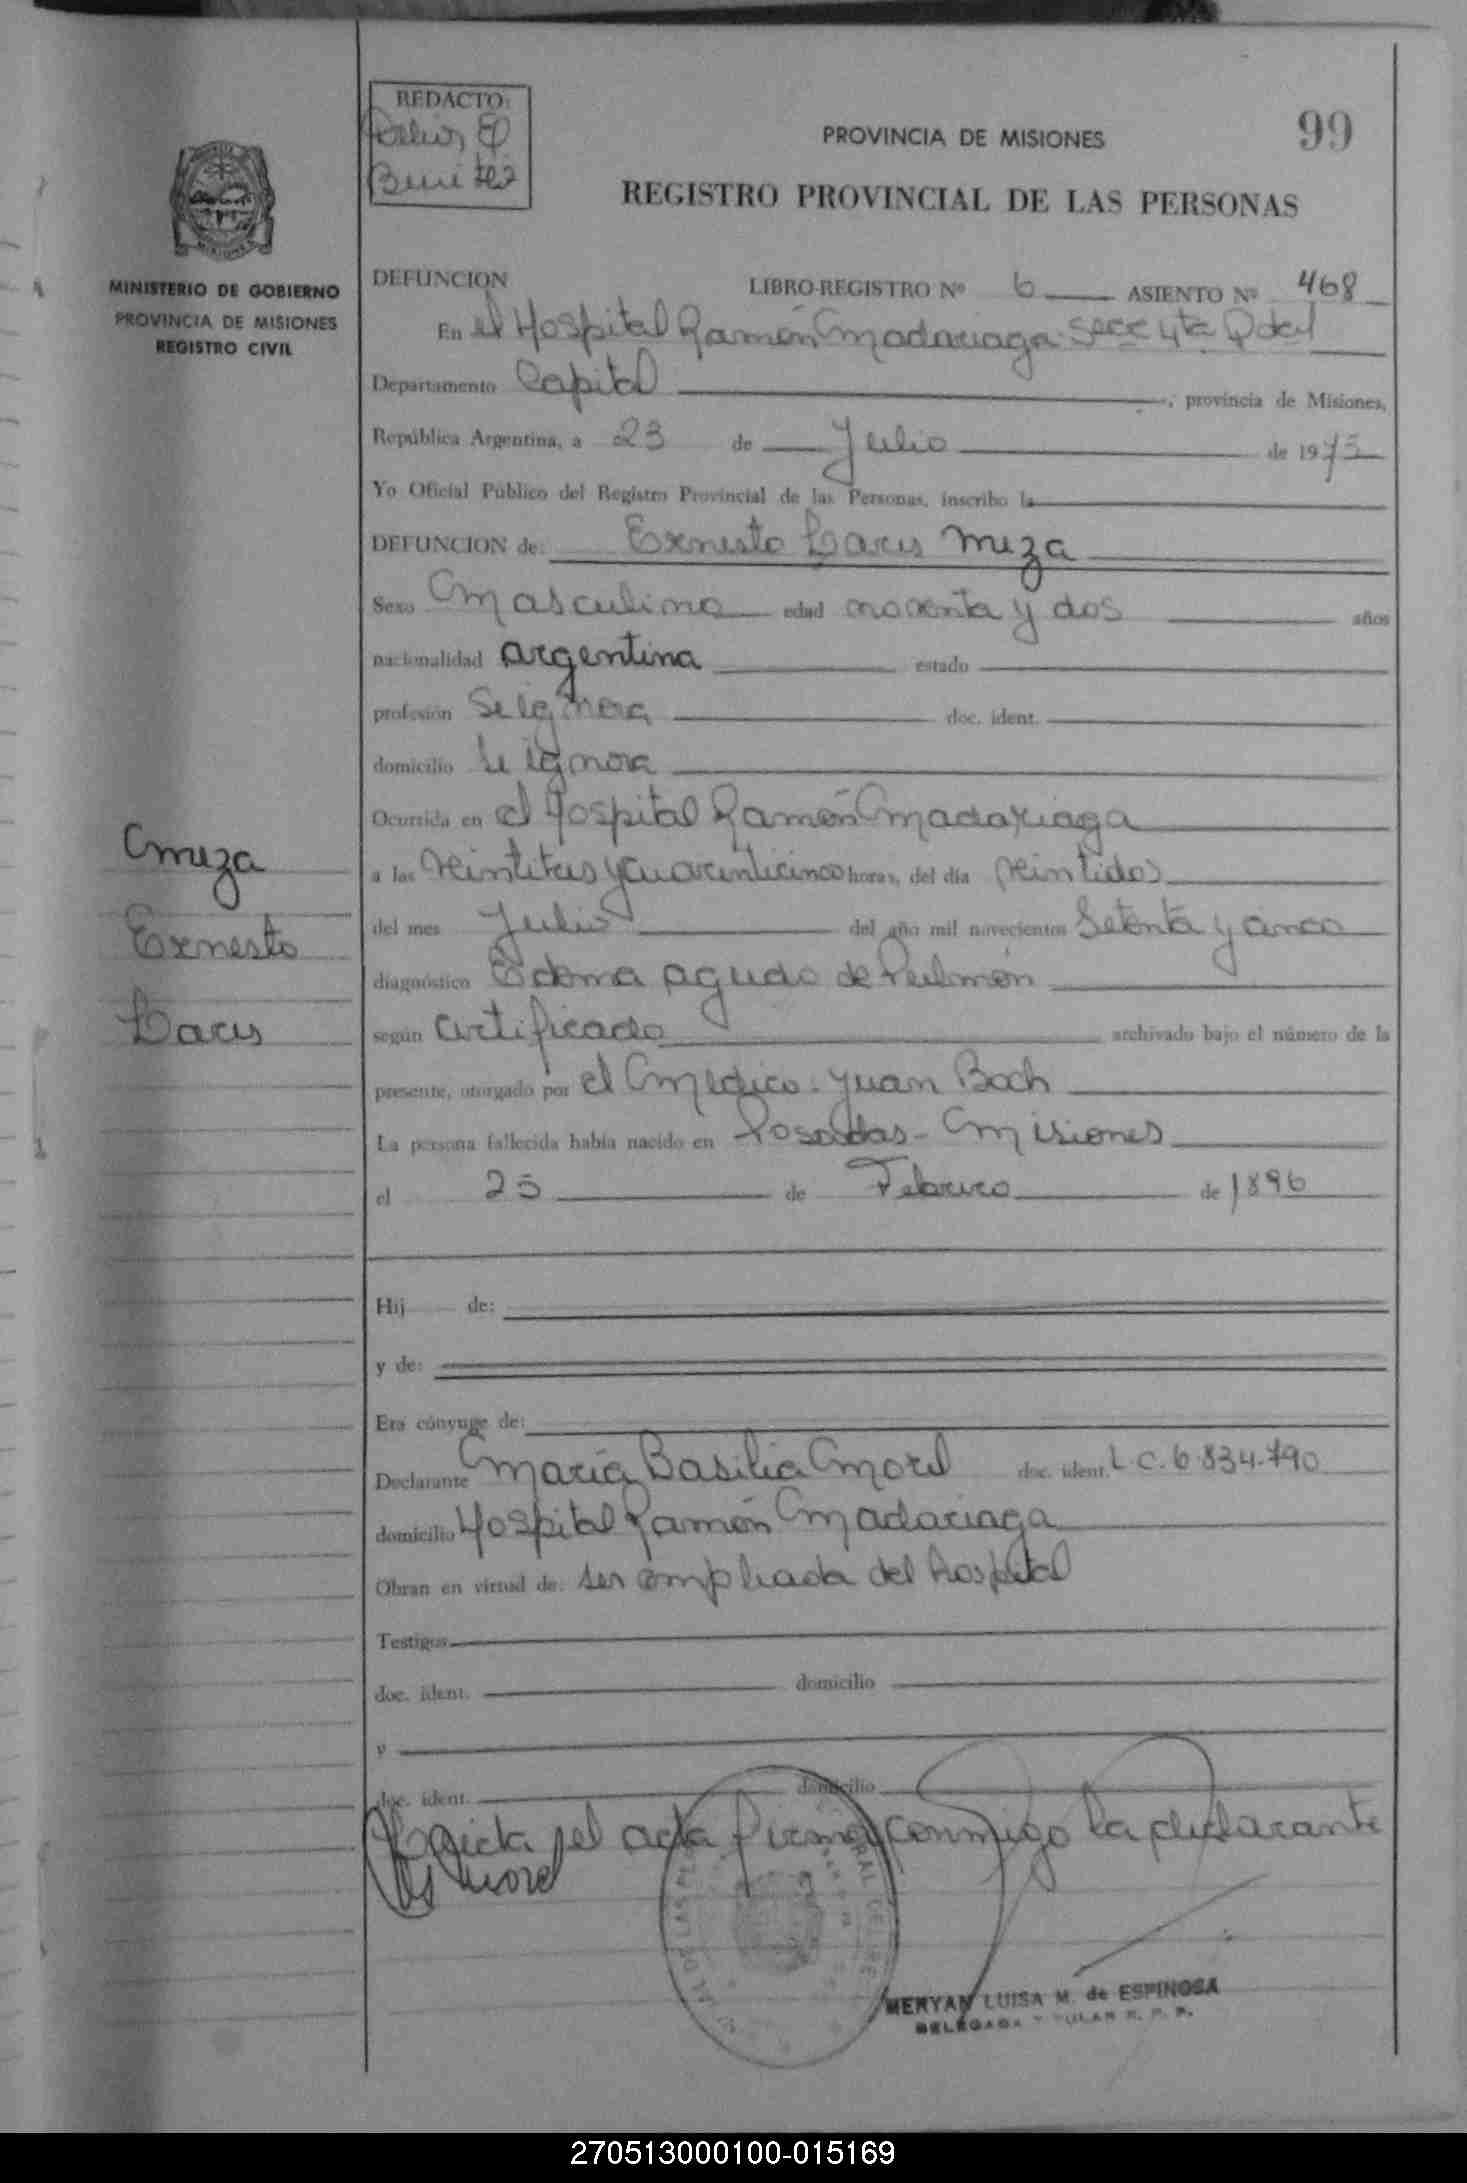 REDACTO:
Benitez
PROVINCIA DE MISIONES
99
REGISTRO PROVINCIAL DE LAS PERSONAS
MINISTERIO DE GOBIERNO
PROVINCIA DE MISIONES
REGISTRO CIVIL
DEFUNCION LIBRO-REGISTRO Nº 6 ASIENTO Nº 468
En el Hospital Ramón Madariaga Secc 4ta
Departamento Capital, provincia de Misiones,
República Argentina, a 23 de Julio de 1975
Yo Oficial Público del Registro Provincial de las Personas, inscribo la
DEFUNCION de: Ernesto Meza
Sexo Masculino edad noventa y dos años
nacionalidad argentina estado
profesión Se ignora doc. ident.
domicilio Se ignora
Ocurrida en el Hospital Ramón Madariaga
a las veintitres y cuarenticinco horas, del día veintidos
del mes Julio del año mil novecientos Setenta y cinco
diagnóstico Edema agudo de Pulmón
según certificado archivado bajo el número de la
presente, otorgado por el Medico: Juan Boch
La persona fallecida había nacido en Posadas - Misiones
el 25 de Febrero de 1896
Hij de:
y de:
Era cónyuge de:
Declarante María Basilia Morel doc. ident. L.C. 6.834.790
domicilio Hospital Ramón Madariaga
Obran en virtud de: ser empleada del hospital
Testigos
doc. ident. domicilio
y
doc. ident. domicilio
Leida el acta firma conmigo la declarante
Morel
MERYAN LUISA M. de ESPINOSA
DELEGADA TITULAR R. P. P.
Meza
Ernesto
270513000100-015169